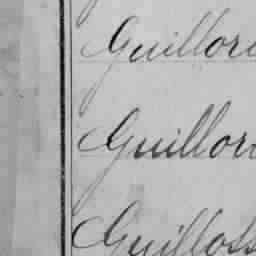 Guillore
Guillore
Guilloss